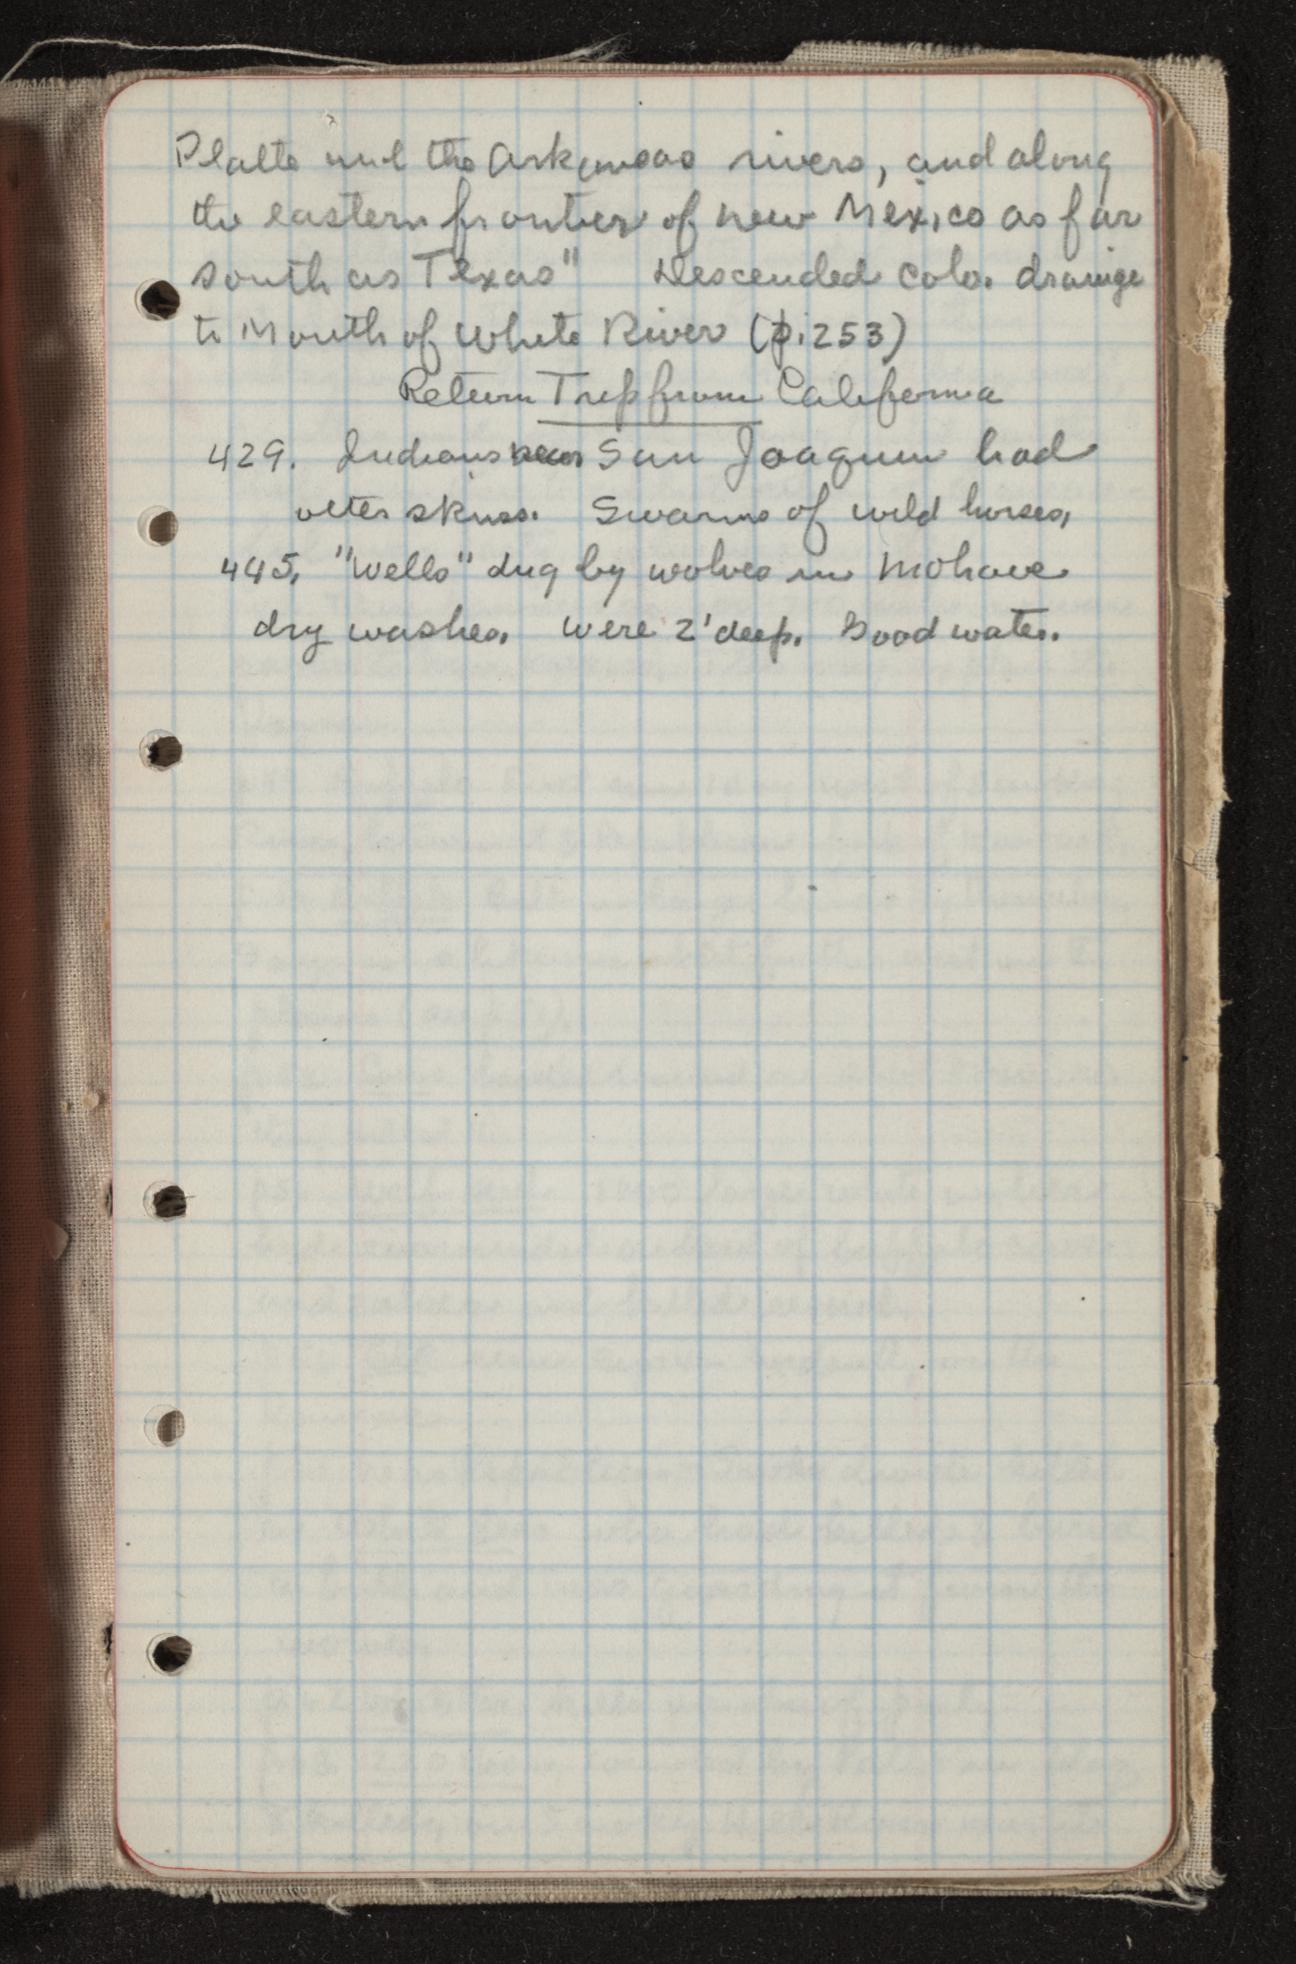 Platte and the Arkansas rivers, and along
the eastern frontier of new Mexico as far
south as Texas" Descended Colo. drainge
to Mouth of White River (p. 253)
Return Trip from California
429. Indians near San Joaquin had
otter skins. Swarms of wild horses,
445, "Wells" dug by wolves in Mohave
dry washes. Were 2' deep. Good water.